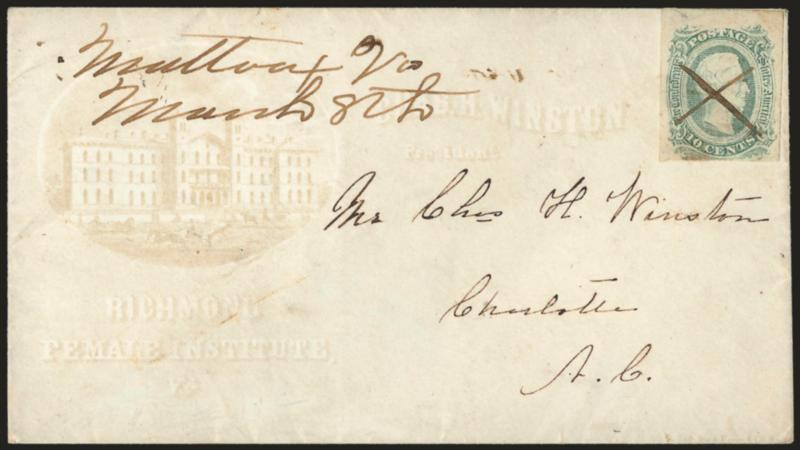 Mattoax Va
March 8th
H. WINSTON
President
POSTAGE
Confederate States America
10 CENTS
Mr Chas H. Winston
Charlotte
N. C.
RICHMOND
FEMALE INSTITUTE,
VA